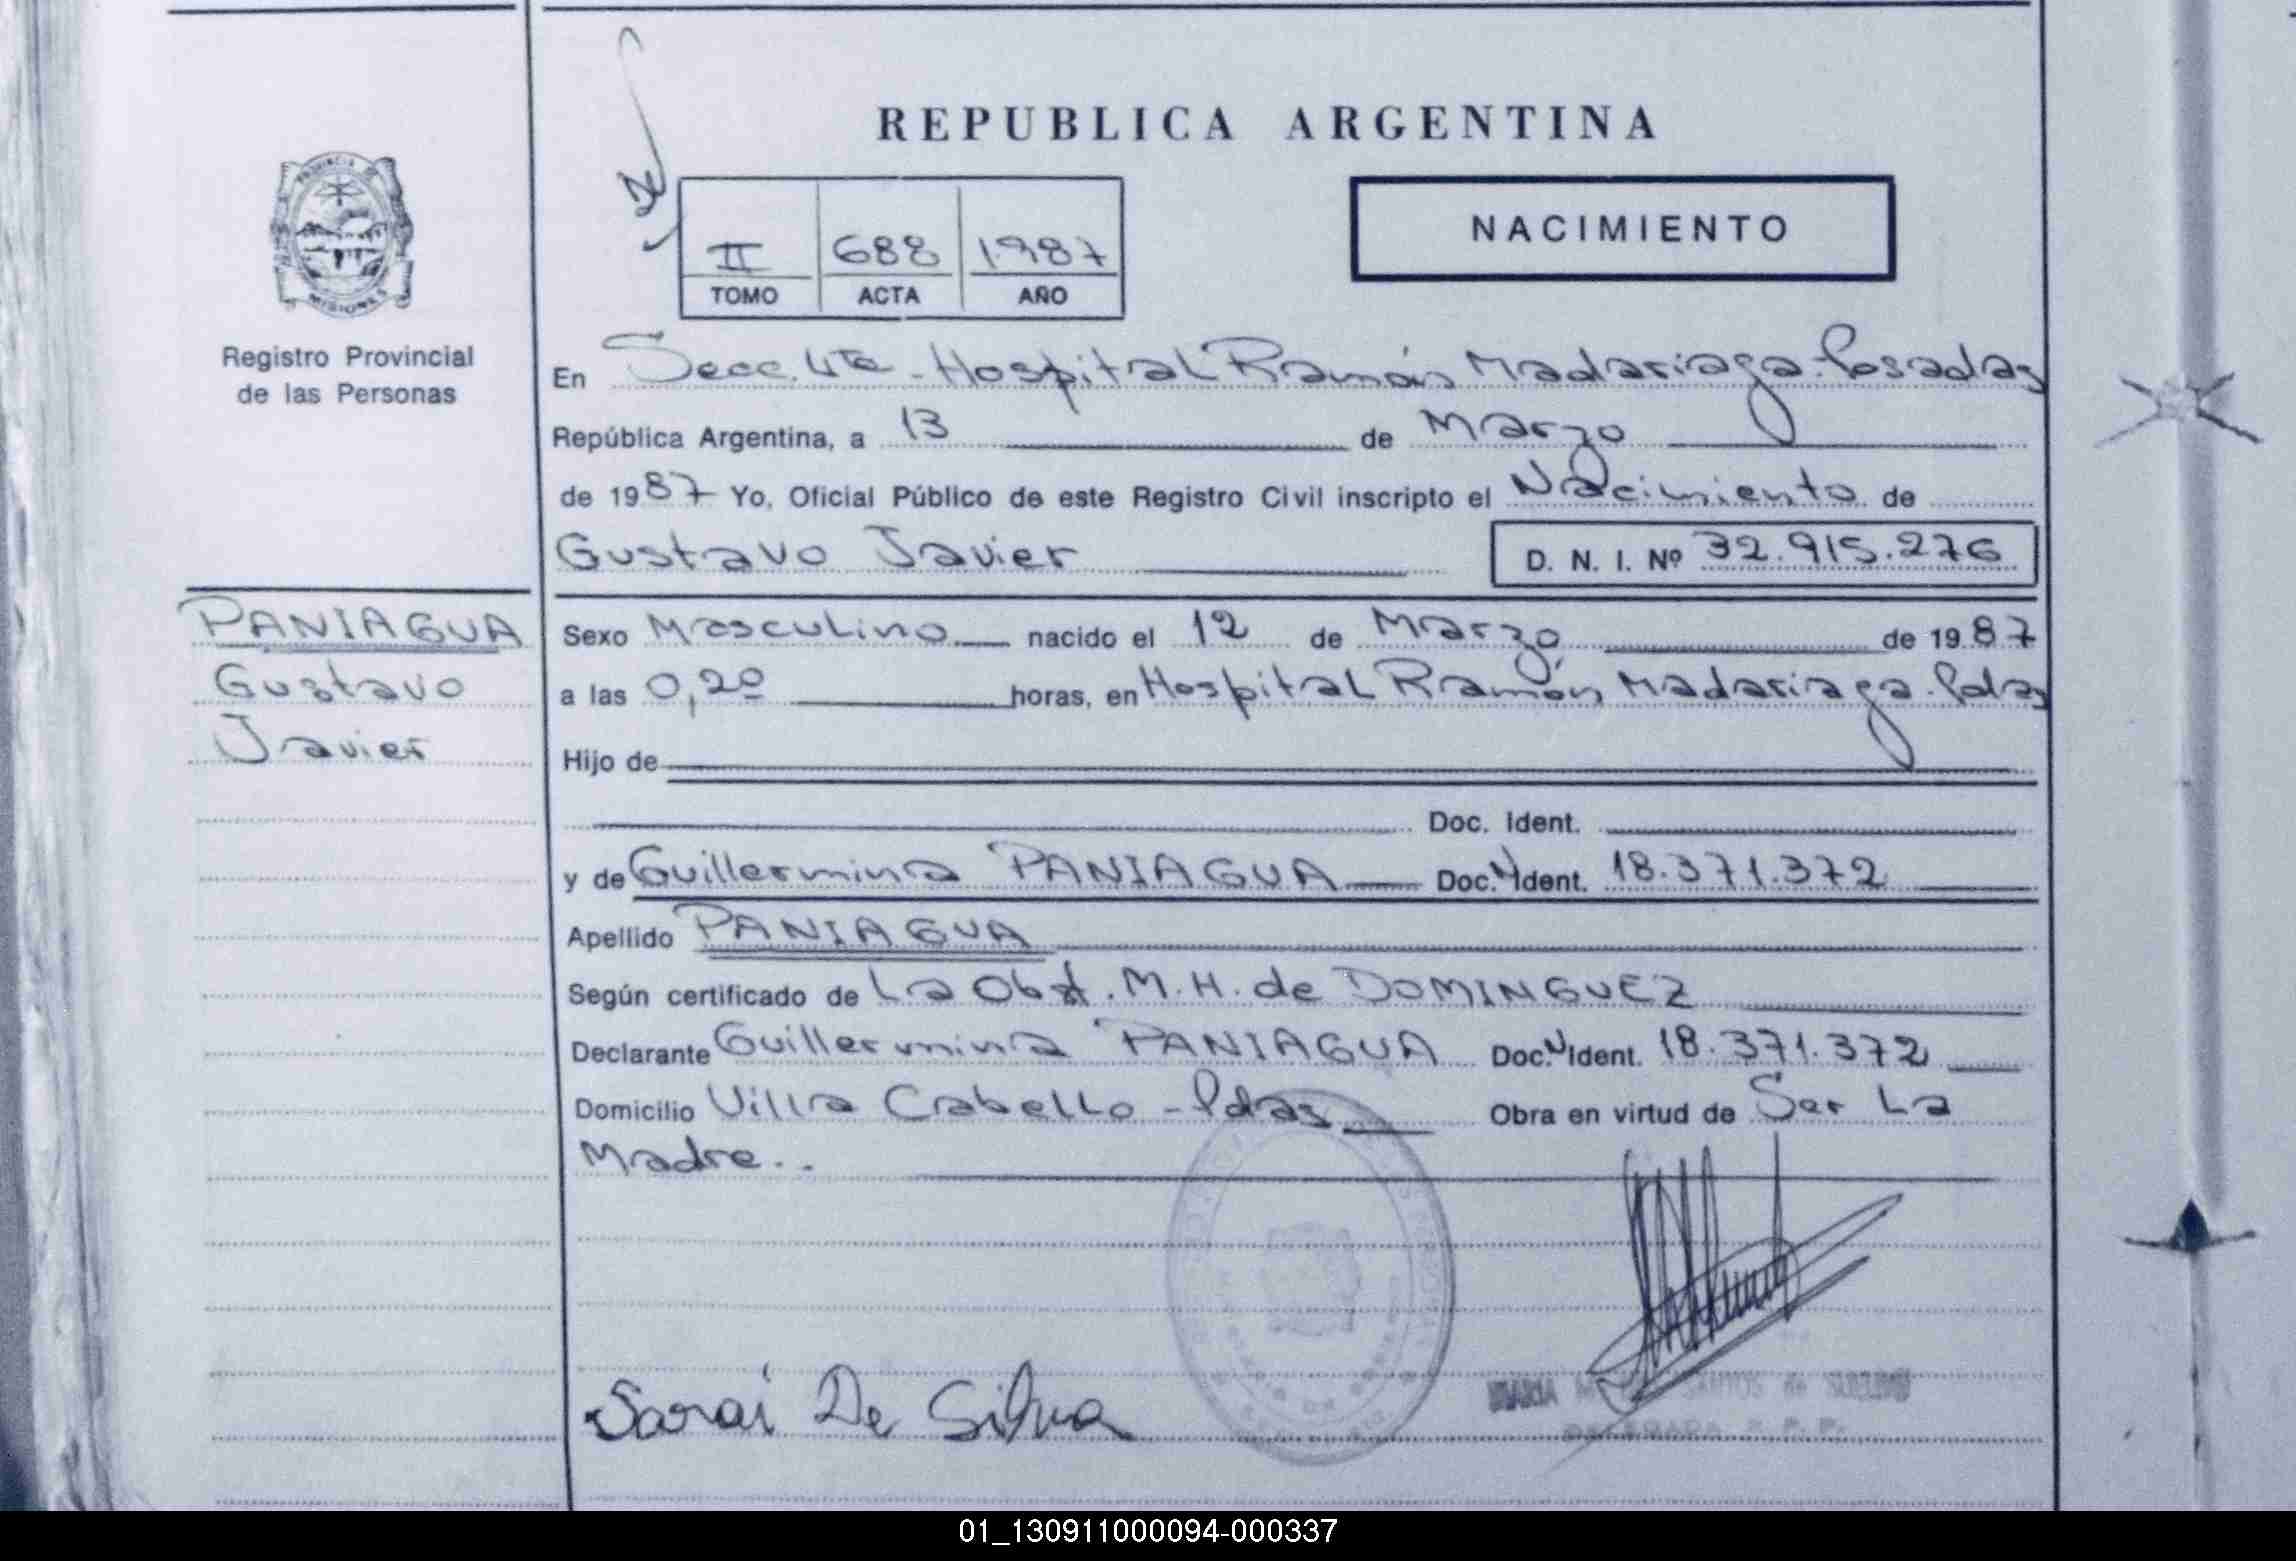 REPUBLICA ARGENTINA
NACIMIENTO
II 688 1987
TOMO ACTA AÑO
PROVINCIA DE
MISIONES
Registro Provincial
de las Personas
En Secc. 4ta - Hospital Ramón Madariaga - Posadas
República Argentina, a 13 de Marzo
de 1987 Yo, Oficial Público de este Registro Civil inscripto el Nacimiento de
Gustavo Javier D. N. I. Nº 32.915.276
PANIAGUA
Gustavo
Javier
Sexo Masculino nacido el 12 de Marzo de 1987
a las 0,20 horas, en Hospital Ramón Madariaga - Pdas
Hijo de
Doc. Ident.
y de Guillermina PANIAGUA Doc. Ident. 18.371.372
Apellido PANIAGUA
Según certificado de La Obst. M. H. de DOMINGUEZ
Declarante Guillermina PANIAGUA Doc. Ident. 18.371.372
Domicilio Villa Cabello - Pdas Obra en virtud de Ser La
Madre..
Sarai De Silva
MARIA
01_130911000094-000337